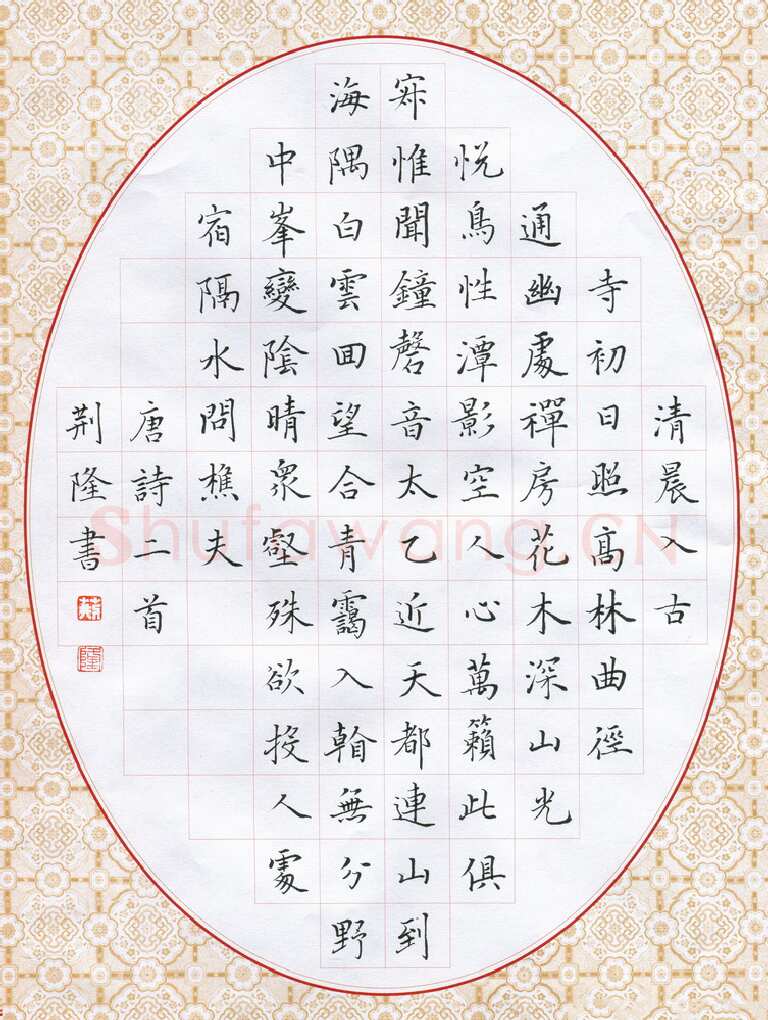 清晨入古
寺初日照髙林曲徑
通幽處禪房花木深山光
悦鳥性潭影空人心萬籟此俱
寂惟聞鐘磬音太乙近天都連山到
海隅白雲囬望合青靄入看無分野
中峯變陰晴眾壑殊欲投人處
宿隔水問樵夫
唐詩二首
荆隆書
Shufawang.CN